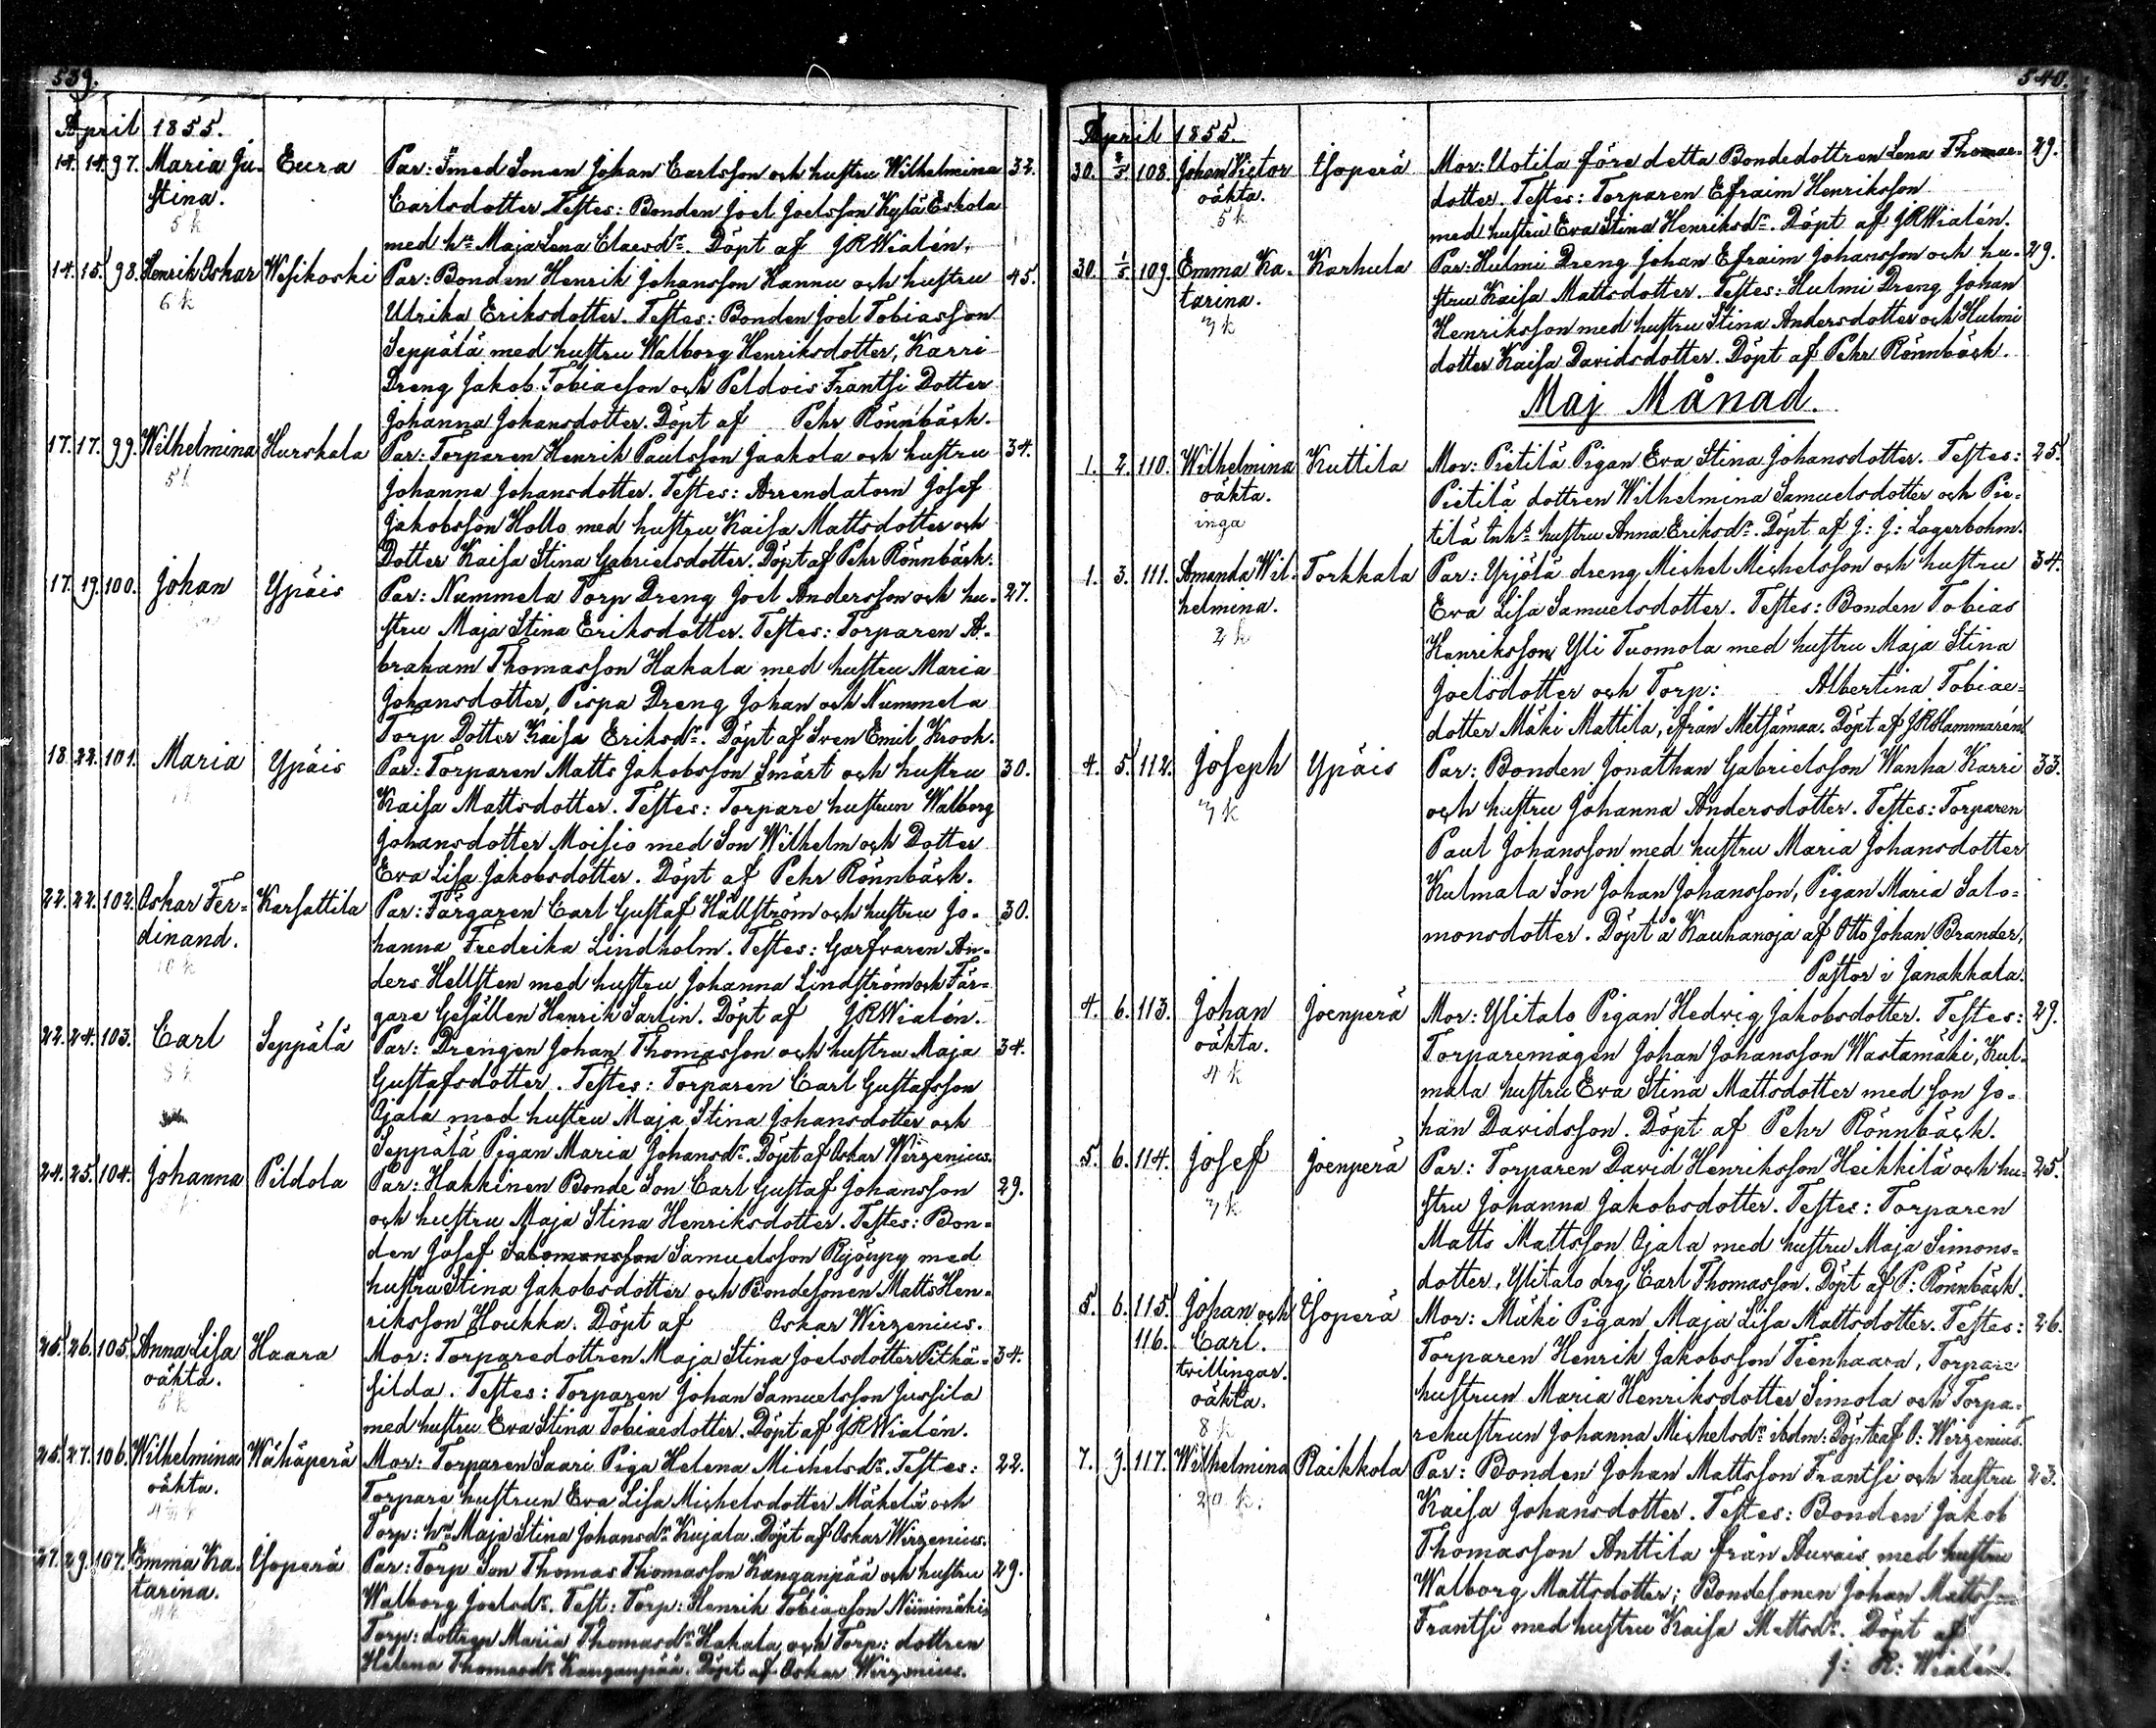 539.
April 1855.
14. 14. 97. Maria Ju- Eura Par: Smed Sonen Johan Carlsson och hustru Wilhelmina 32.
stina. Carlsdotter Testes: Bonden Joel Joelsson Kylä Eskola
5 k med hu Maja Lena Claesdr. Döpt af JRWialén.
14. 15. 98. Henrik Oskar Wesikoski Par: Bonden Henrik Johansson Hannu och hustru 45.
6 k Ulrika Eriksdotter. Testes: Bonden Joel Tobiasson
Seppälä med hustru Walborg Henriksdotter, Karri
Dreng Jakob Tobiaesson och Peldois Frantsi Dotter
Johanna Johansdotter. Döpt af Pehr Rönnbäck.
17. 17. 99. Wilhelmina Hurskala Par: Torparen Henrik Paulsson Jaakola och hustru 34.
5 k Johanna Johansdotter. Testes: Arrendatorn Josef
Jakobsson Hollo med hustru Kaisa Mattsdotter och
Dotter Kaisa Stina Gabrielsdotter. Döpt af Pehr Rönnbäck.
17. 19. 100. Johan Ypäis Par: Nummela Torp Dreng Joel Andersson och hu- 27.
stru Maja Stina Eriksdotter. Testes: Torparen A-
braham Thomasson Hakala med hustru Maria
Johansdotter, Pispa Dreng Johan och Nummela
Torp Dotter Kaisa Eriksdr. Döpt af Sven Emil Krook.
18. 22. 101. Maria Ypäis Par: Torparen Matts Jakobsson Smärt och hustru 30.
Kaisa Mattsdotter. Testes: Torpare hustrun Walborg
Johansdotter Moisio med Son Wilhelm och Dotter
Eva Lisa Jakobsdotter. Döpt af Pehr Rönnbäck.
22. 22. 102. Oskar Fer- Karsattila Par: Färgaren Carl Gustaf Hällström och hustru Jo- 30.
dinand. hanna Fredrika Lindholm. Testes: Garfvaren An-
10 k ders Hellsten med hustru Johanna Lindström och Fär-
gare Gesällen Henrik Sarlin. Döpt af JRWialén.
22. 24. 103. Carl Seppälä Par: Drengen Johan Thomasson och hustru Maja 34.
8 k Gustafsdotter. Testes: Torparen Carl Gustafsson
Ojala med hustru Maja Stina Johansdotter och
Seppälä Pigan Maria Johansdr. Döpt af Oskar Wirzenius.
24. 25. 104. Johanna Pildola Par: Hakkinen Bonde Son Carl Gustaf Johansson 29.
och hustru Maja Stina Henriksdotter. Testes: Bon-
den Josef Salomonsson Samuelsson Ryöupy med
hustru Stina Jakobsdotter och Bondesonen Matts Hen-
riksson Houkka. Döpt af Oskar Wirzenius.
25. 26. 105. Anna Lisa Haara Mor: Torparedottren Maja Stina Joelsdotter Pitkä- 34.
oäkta. silda. Testes: Torparen Johan Samuelsson Jussila
5 k med hustru Eva Stina Tobiaedotter. Döpt af JRWialén.
25. 27. 106. Wilhelmina Wähäperä Mor: Torparen Saari Piga Helena Michelsdr. Testes: 22.
oäkta. Torpare hustrun Eva Lisa Michelsdotter Mäkelä och
Torp: hu Maja Stina Johansdr Kujala. Döpt af Oskar Wirzenius.
27. 29. 107. Emma Ka- Isoperä Par: Torp Son Thomas Thomasson Kanganpää och hustru 29.
tarina. Walborg Joelsdr. Test: Torp: Henrik Tobiaesson Niinimäki,
4 k Torp: dottren Maria Thomasdr Hakala och Torp: dottren
Helena Thomasdr Kanganpää. Döpt af Oskar Wirzenius.
540.
April 1855.
30. 2/5 108. Johan Victor Isoperä Mor: Uotila före detta Bondedottren Lena Thomae- 29.
oäkta. dotter. Testes: Torparen Efraim Henriksson
5 k med hustru Eva Stina Henriksdr. Döpt af JRWialén.
30. 1/5 109. Emma Ka- Karhula Par: Hulmi Dreng Johan Efraim Johansson och hu- 29.
tarina. stru Kaisa Mattsdotter. Testes: Hulmi Dreng Johan
3 k Henriksson med hustru Stina Andersdotter och Hulmi
dotter Kaisa Davidsdotter. Döpt af Pehr Rönnbäck.
Maj Månad.
1. 2. 110. Wilhelmina Kuttila Mor: Pietilä Pigan Eva Stina Johansdotter. Testes: 25.
oäkta. Pietilä dottren Wilhelmina Samuelsdotter och Pie-
inga tilä Inhs hustru Anna Eriksdr. Döpt af J: J: Lagerbohm.
1. 3. 111. Amanda Wil- Torkkala Par: Yrjölä dreng Michel Michelsson och hustru 34.
helmina. Eva Lisa Samuelsdotter. Testes: Bonden Tobias
2 k Henriksson Yli Tuomola med hustru Maja Stina
Joelsdotter och Torp: Albertina Tobiae-
dotter Mäki Mattila, ifrån Metsämaa. Döpt af JRHammarén.
4. 5. 112. Joseph Ypäis Par: Bonden Jonathan Gabrielsson Wanha Karri 33.
3 k och hustru Johanna Andersdotter. Testes: Torparen
Paul Johansson med hustru Maria Johansdotter
Kulmala Son Johan Johansson, Pigan Maria Salo-
monsdotter. Döpt å Kauhanoja af Otto Johan Brander,
Pastor i Janakkala.
4. 6. 113. Johan Joenperä Mor: Ylitalo Pigan Hedvig Jakobsdotter. Testes: 29.
oäkta. Torparemågen Johan Johansson Wastamäki, Kul-
4 k mala hustru Eva Stina Mattsdotter med son Jo-
han Davidsson. Döpt af Pehr Rönnbäck.
5. 6. 114. Josef Joenperä Par: Torparen David Henriksson Heikkilä och hu- 25.
3 k stru Johanna Jakobsdotter. Testes: Torparen
Matts Mattsson Ojala med hustru Maja Simons-
dotter, Ylitalo drg Carl Thomasson. Döpt af P: Rönnbäck.
5. 6. 115. Johan och Isoperä Mor: Mäki Pigan Maja Lisa Mattsdotter. Testes: 26.
116. Carl. Torparen Henrik Jakobsson Tienhaara, Torpare
tvillingar. hustrun Maria Henriksdotter Simola och Torpa-
oäkta. rehustrun Johanna Michelsdr ibdm: Döpte af O: Wirzenius.
8 k
7. 9. 117. Wilhelmina Raikkola Par: Bonden Johan Mattsson Frantsi och hustru 23.
20 k. Kaisa Johansdotter. Testes: Bonden Jakob
Thomasson Anttila från Auvais med hustru
Walborg Mattsdotter; Bondesonen Johan Mattsson
Frantsi med hustru Kaisa Mattsdr. Döpt af
J: R: Wialén.